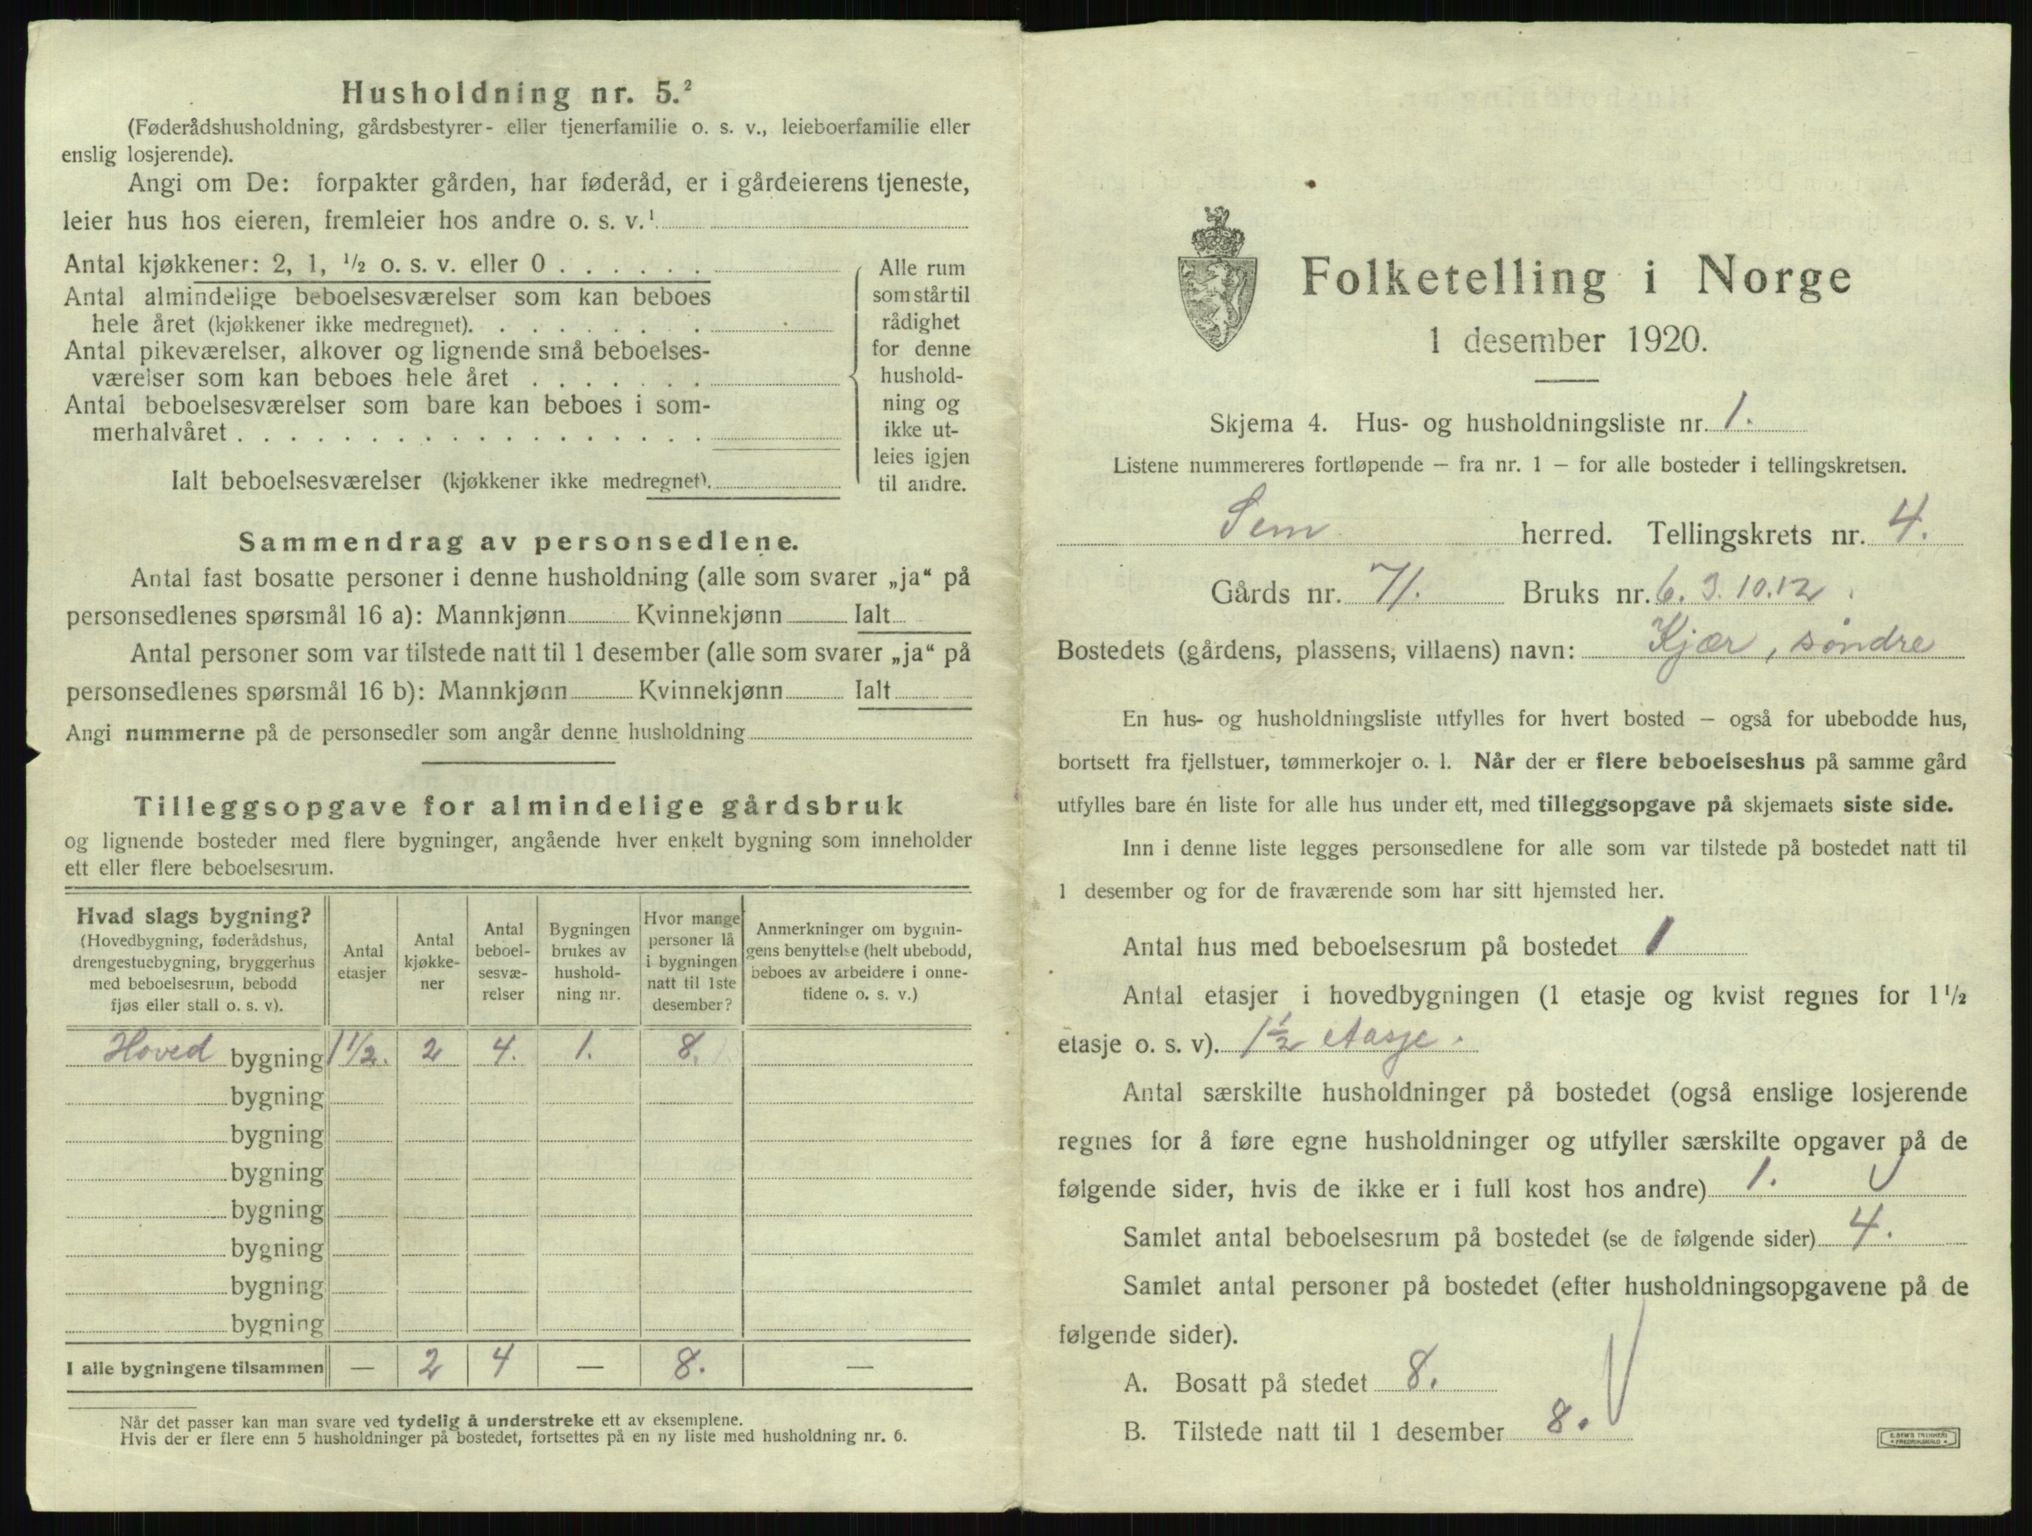 Husholdning nr. 5.²
(Føderådshusholdning, gårdsbestyrer- eller tjenerfamilie o. s. v., leieboerfamilie eller
enslig losjerende).
Angi om De: forpakter gården, har føderåd, er i gårdeierens tjeneste,
leier hus hos eieren, fremleier hos andre o. s. v.¹
Antal kjøkkener: 2, 1, ½ o. s. v. eller 0 . . . . . .
Antal almindelige beboelsesværelser som kan beboes
hele året (kjøkkener ikke medregnet). . . . . . . . .
Antal pikeværelser, alkover og lignende små beboelses-
værelser som kan beboes hele året . . . . . . .
Antal beboelsesværelser som bare kan beboes i som-
merhalvåret . . . . . . . . . . . . . . . . . .
Ialt beboelsesværelser (kjøkkener ikke medregnet).
Alle rum
som står til
rådighet
for denne
hushold-
ning og
ikke ut-
leies igjen
til andre.
Sammendrag av personsedlene.
Antal fast bosatte personer i denne husholdning (alle som svarer „ja“ på
personsedlenes spørsmål 16 a): Mannkjønn Kvinnekjønn Ialt
Antal personer som var tilstede natt til 1 desember (alle som svarer „ja“ på
personsedlenes spørsmål 16 b): Mannkjønn Kvinnekjønn Ialt
Angi nummerne på de personsedler som angår denne husholdning
Tilleggsopgave for almindelige gårdsbruk
og lignende bosteder med flere bygninger, angående hver enkelt bygning som inneholder
ett eller flere beboelsesrum.
Hvad slags bygning?
(Hovedbygning, føderådshus,
drengestuebygning, bryggerhus
med beboelsesrum, bebodd
fjøs eller stall o. s. v).
Antal
etasjer
Antal
kjøkke-
ner
Antal
beboel-
sesvæ-
relser
Bygningen
brukes av
hushold-
ning nr.
Hvor mange
personer lå
i bygningen
natt til 1ste
desember?
Anmerkninger om bygnin-
gens benyttelse (helt ubebodd,
beboes av arbeidere i onne-
tidene o. s. v.)
Hoved bygning 1 1/2. 2 4. 1. 8.
bygning
bygning
bygning
bygning
bygning
bygning
bygning
I alle bygningene tilsammen — 2 4 — 8. —
Når det passer kan man svare ved tydelig å understreke ett av eksemplene.
Hvis der er flere enn 5 husholdninger på bostedet, fortsettes på en ny liste med husholdning nr. 6.
Folketelling i Norge
1 desember 1920.
Skjema 4. Hus- og husholdningsliste nr. 1.
Listene nummereres fortløpende – fra nr. 1 – for alle bosteder i tellingskretsen.
Sem herred. Tellingskrets nr. 4.
Gårds nr. 71. Bruks nr. 6. 3. 10. 12.
Bostedets (gårdens, plassens, villaens) navn: Kjær, søndre
En hus- og husholdningsliste utfylles for hvert bosted – også for ubebodde hus,
bortsett fra fjellstuer, tømmerkojer o. l. Når der er flere beboelseshus på samme gård
utfylles bare én liste for alle hus under ett, med tilleggsopgave på skjemaets siste side.
Inn i denne liste legges personsedlene for alle som var tilstede på bostedet natt til
1 desember og for de fraværende som har sitt hjemsted her.
Antal hus med beboelsesrum på bostedet 1
Antal etasjer i hovedbygningen (1 etasje og kvist regnes for 1½
etasje o. s. v). 1½ etasje.
Antal særskilte husholdninger på bostedet (også enslige losjerende
regnes for å føre egne husholdninger og utfyller særskilte opgaver på de
følgende sider, hvis de ikke er i full kost hos andre) 1.
Samlet antal beboelsesrum på bostedet (se de følgende sider) 4.
Samlet antal personer på bostedet (efter husholdningsopgavene på de
følgende sider).
A. Bosatt på stedet 8.
B. Tilstede natt til 1 desember 8.